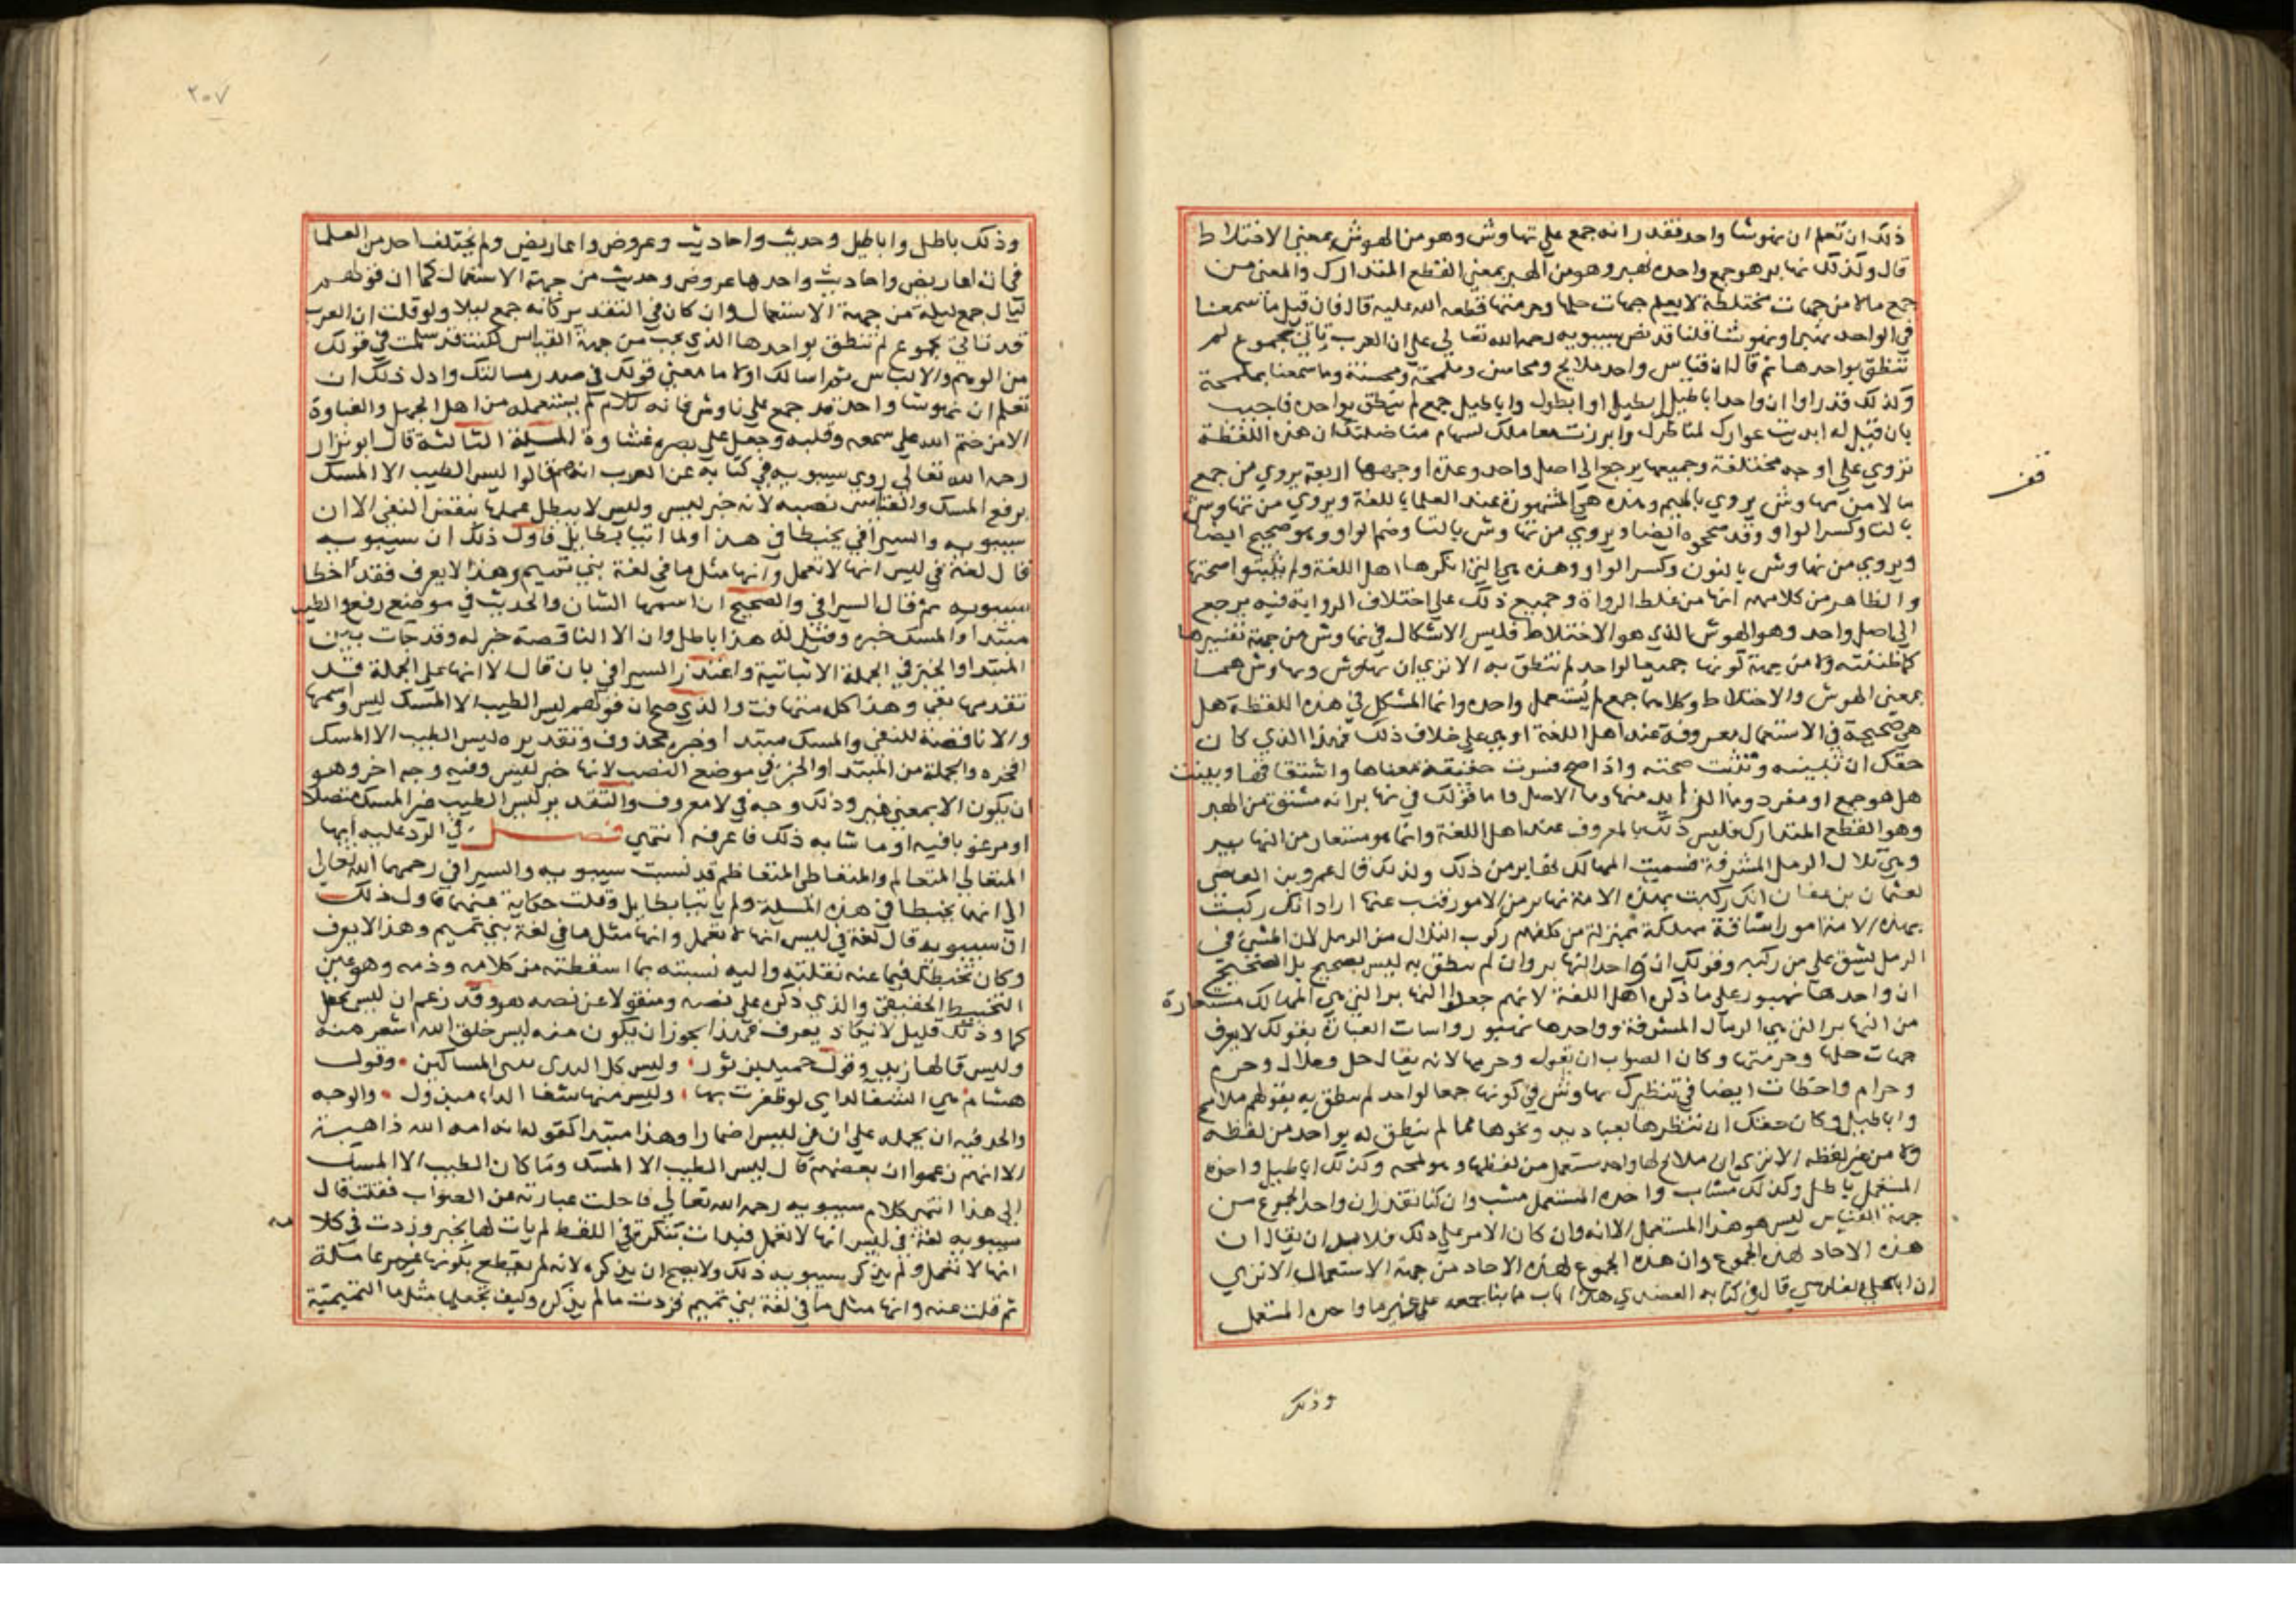 ذلك ان تعلم ان نهوشا واحد فقدر انه جمع على تهاوش وهو من الهوش بمعنى الاختلاط
قال وكذلك نهابر هو جمع واحده نهبر وهو من الهبر بمعنى القطع المتدارك والمعنى من
جمع مالا من جهات مختلطة لا يعلم جهات حلها وحرمتها قطعه الله عليه قال فان قيل ما سمعنا
في الواحد نهبرا ونهوشا قلنا قد نص سيبويه رحمه الله تعالى على ان العرب تاتي بجموع لم
تنطق بواحدها ثم قال ان قياس واحد ملامح ومحاسن وملمحة ومحسنة وما سمعنا بملمحة
وكذلك قدروا ان واحد اباطيل ابطيل او ابطول واباطيل جمع لم ينطق بواحده فاجيب
بان قيل له ابديت عوارك لمناظرك وابرزت معاملك لسهام مناضلتك ان هذه اللفظة
تروي على اوجه مختلفة وجميعها يرجع الى اصل واحد وعدة اوجهها اربعة يروي من جمع
مالا من مهاوش يروي بالميم وهذه هي المشهورة عند العلما باللغة ويروي من تهاوش
بالتا وكسر الواو وقد صححوه ايضا ويروي من تهاوش بالتا وضم الواو وهو صحيح ايضا
ويروي من نهاوش بالنون وكسر الواو وهذه هي التي انكرها اهل اللغة ولم يثبتوا صحتها
والظاهر من كلامهم انها من غلط الرواة وجميع ذلك على اختلاف الرواية فيه يرجع
الى اصل واحد وهو الهوش الذي هو الاختلاط فليس الاشكال في نهاوش من جهة تفسيرها
كما ظننته ولا من جهة كونها جمعا لواحد لم تنطق به الا تري ان تهاوش ومهاوش هما
بمعنى الهوش والاختلاط وكلاهما جمع لم يستعمل واحده وانما المشكل في هذه اللفظة هل
هي صحيحة في الاستعمال معروفة عند اهل اللغة او هي على خلاف ذلك فهذا الذي كان
حقك ان تبينه وتثبت صحته واذا صح فسرت حقيقة معناها واشتقاقها وبينت
هل هو جمع او مفرد وما الزايد منها وما الاصل فاما قولك في نهابر انه مشتق من الهبر
وهو القطع المتدارك فليس ذلك بالمعروف عند اهل اللغة وانما هو مستعار من النهابير
وهي تلال الرمل المشرفة فسميت المهالك نهابر من ذلك ولذلك قال عمرو بن العاصي
لعثمان بن عفان انك ركبت بهذه الامة نهابر من الامور فتب عنها اراد انك ركبت
بهذه الامة امورا شاقة مهلكة بمنزلة من كلفهم ركوب التلال من الرمل لان المشي في
الرمل يشق على من ركبه وقولك ان واحد النهابر وان لم ينطق به ليس بصحيح بل الصحيح
ان واحدها نهبور على ما ذكره اهل اللغة لانهم جعلوا النهابر التي هي المهالك مستعارة
من النهابر التي هي الرمال المشرفة وواحدها نهبور واسات العبارة بقولك لا يعرف
جهات حلها وحرمتها وكان الصواب ان يقول وحرمها لانه يقال حل وحلال وحرم
وحرام واخطات ايضا في تنظيرك نهاوش في كونها جمعا لواحد لم ينطق به بقولهم ملامح
واباطيل وكان حقك ان تنظرها بعباديد ونحوها مما لم ينطق له بواحد من لفظه
ولا من غير لفظه الا تري ان ملامح لها واحد مستعمل من لفظها وهو لمحه وكذلك اباطيل واحده
المستعمل باطل وكذلك مشابه واحده المستعمل شبه وان كنا نقدر ان واحد الجموع من
جهة القياس ليس هو هذا المستعمل الا انه وان كان الامر على ذلك فلا بد ان يقال ان
هذه الاحاد لهذه الجموع وان هذه الجموع لهذه الاحاد من جهة الاستعمال الا تري
ان ابا علي الفارسي قال في كتابه العضدي هذا باب ما بنا جمعه على غير ما واحده المستعمل
وذلك
قف
٢٠٧
وذلك باطل واباطيل وحديث واحاديث وعروض واعاريض ولم يختلف احد من العلما
في ان اعاريض واحاديث واحدها عروض وحديث من جهة الاستعمال كما ان قولهم
ليال جمع ليلة من جهة الاستعمال وان كان في التقدير كانه جمع ليلا ولو قلت ان العرب
قد تاتي بجموع لم تنطق بواحدها الذي يجب من جهة القياس لكنت قد سلمت في قولك
من الوهم والالباس ثم اسالك اولا ما معنى قولك في صدر مسالتك وادل ذلك ان
تعلم ان نهوشا واحد قد جمع على نهاوش فانه كلام لم يستعمله من اهل الجهل والغباوة
الا من ختم الله على سمعه وقلبه وجعل على بصره غشاوة المسئلة الثالثة قال ابو نزار
رحمه الله تعالى روي سيبويه في كتابه عن العرب انهم قالوا ليس الطيب الا المسك
برفع المسك والقياس نصبه لانه خبر ليس وليس لا يبطل عملها بنقض النفي الا ان
سيبويه والسيرافي يخبطا في هذا ولما اتيا بطايل فاول ذلك ان سيبويه
قال لغة في ليس انها لا تعمل وانها مثل ما في لغة بني تميم وهذا لا يعرف فقد اخطا
سيبويه ثم قال السيرافي والصحيح ان اسمها الشان والحديث في موضع رفع والطيب
مبتدا والمسك خبره وقيل له هذا باطل وان الا الناقصة خبر له وقد جات بين
المبتدا والخبر في الجملة الاثباتية واعتذر السيرافي بان قال الا انها على الجملة قد
تقدمها نفي وهذا كله متهافت والذي صح ان قولهم ليس الطيب الا المسك ليس واسمها
والا ناقضة للنفي والمسك مبتدا وخبره محذوف وتقديره ليس الطيب الا المسك
افخره والجملة من المبتدا والخبر في موضع النصب لانها خبر ليس وفيه وجه اخر وهو
ان يكون الا بمعنى غير وذلك وجه في لا معروف والتقدير ليس الطيب غير المسك مفضلا
او مرغوبا فيه او ما شابه ذلك فاعرفه انتهي فصل في الرد عليه ايها
المتعالي المتعالم والمتغاطي المتعاظم قد نسبت سيبويه والسيرافي رحمهما الله تعالى
الى انهما يخبطا في هذه المسئلة ولم ياتيا بطايل وقلت حكاية عنهما فاول ذلك
ان سيبويه قال لغة في ليس انها لا تعمل وانها مثل ما في لغة بني تميم وهذا لا يعرف
وكان تخبطك فيما عنه نقلته واليه نسبته بما اسقطته من كلامه وذمه وهو عين
التخبيط الحقيقي والذي ذكره على نصه ومنقولا عن نصه هو وقد زعم ان ليس تجعل
كما وذلك قليل لا يكاد يعرف فهذا يجوز ان يكون منه ليس خلق الله اشعر منه
وليس قالها زيد وقول حميد بن ثور وليس كل النوى يلقى المساكين وقول
هشام هي الشفا لداى لو ظفرت بها وليس منها شفا الداء مبذول والوجه
والحد فيه ان يحمله على ان في ليس اضمارا وهذا مبتدا كقوله انه امه الله ذاهبة
الا انهم زعموا ان بعضهم قال ليس الطيب الا المسك وما كان الطيب الا المسك
الى هذا انتهى كلام سيبويه رحمه الله تعالى فاحلت عبارته عن الصواب فقلت قال
سيبويه لغة في ليس انها لا تعمل فبدات بتنكرة في اللفظ لم يات لها بخبر وزدت في كلامه
انها لا تعمل ولم يذكر سيبويه ذلك ولا يصح ان يذكره لانه لم يقطع بكونها غير عاملة
ثم قلت عنه وانها مثل ما في لغة بني تميم فزدت ما لم يذكره وكيف تجعلها مثل ما التميمية